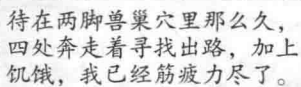 待在两脚兽巢穴里那么久，
四处奔走着寻找出路，加上
饥饿，我已经筋疲力尽了。